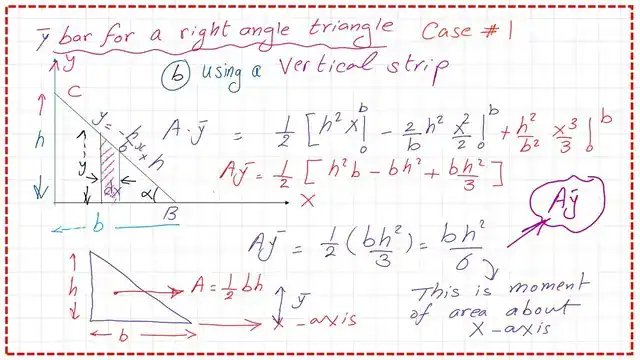 ȳ bar for a right angle triangle Case # 1
ⓑ using a Vertical strip
y
C
h
y = -h/b x + h
y
dx
α
B
X
b
A·ȳ = 1/2 [h² x|₀ᵇ - 2/b h² x²/2|₀ᵇ + h²/b² x³/3|₀ᵇ
Aȳ = 1/2 [h²b - bh² + bh²/3]
Aȳ
Aȳ = 1/2 (bh²/3) = bh²/6
This is moment
of area about
X-axis
h
A = 1/2 bh
ȳ
X-axis
b